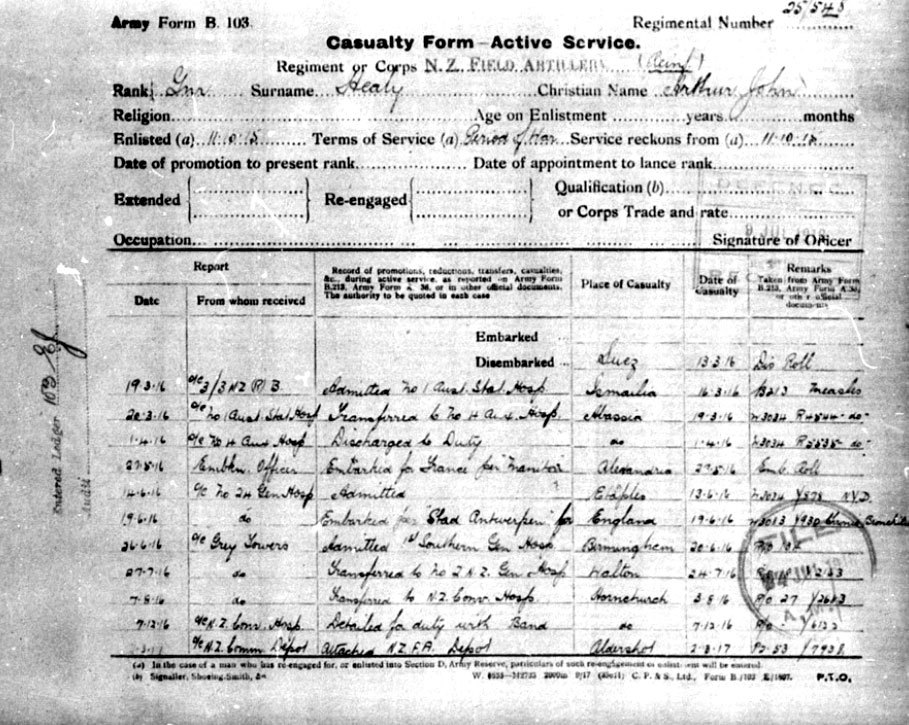 25/548
Army Form B. 103.
Regimental Number
Casualty Form—Active Service.
Regiment or Corps N.Z. FIELD ARTILLERY (Reinf)
Rank Gnr Surname Healy Christian Name Arthur John
Religion Age on Enlistment years months
Enlisted (a) 11.10.15 Terms of Service (a) Period of War Service reckons from (a) 11.10.15
Date of promotion to present rank Date of appointment to lance rank
Extended Re-engaged Qualification (b)
or Corps Trade and rate
Occupation Signature of Officer
Report
Date From whom received
Record of promotions, reductions, transfers, casualties,
&c., during active service, as reported on Army Form
B.213, Army Form A. 36, or in other official documents.
The authority to be quoted in each case
Place of Casualty
Date of
Casualty
Remarks
Taken from Army Form
B.213, Army Form A.36,
or other official
documents
Embarked
Disembarked Suez 13.3.16 Dis Roll
19.3.16 o/c 3/3 NZ RB Admitted No 1 Aust. Stat. Hosp Ismailia 16.3.16 B213 Measles
20.3.16 o/c No 1 Aust. Stat Hosp Transferred to No 4 Aux. Hosp. Abassia 19.3.16 W3034 R4544 - do -
1.4.16 o/c No 4 Aux Hosp Discharged to Duty do 1.4.16 W3034 R5535 - do -
27.5.16 Embkn. Officer Embarked for France per Manitou Alexandria 27.5.16 Emb. Roll
14.6.16 o/c No 24 Gen Hosp Admitted Etaples 13.6.16 W3034 NYD.
19.6.16 do Embarked per "Stad Antwerpen" for England 19.6.16 W3083 Y930
26.6.16 o/c Grey Towers Admitted 1st Southern Gen Hosp. Birmingham 20.6.16
27.7.16 do Transferred to No 2 N.Z. Gen Hosp Walton 24.7.16
7.8.16 do Transferred to N.Z. Conv. Hosp. Hornchurch 3.8.16 R/o 27 Y2683
7.12.16 o/c N.Z. Conv. Hosp. Detailed for duty with Band do 7.12.16
o/c N.Z. Comm Depot Attached N.Z.F.A. Depot Aldershot 2.3.17
(a) In the case of a man who has re-engaged for, or enlisted into Section D, Army Reserve, particulars of such re-engagement or enlistment will be entered.
(b) Signaller, Shoeing-Smith, &c
P.T.O.
Entered Ledger
Audit